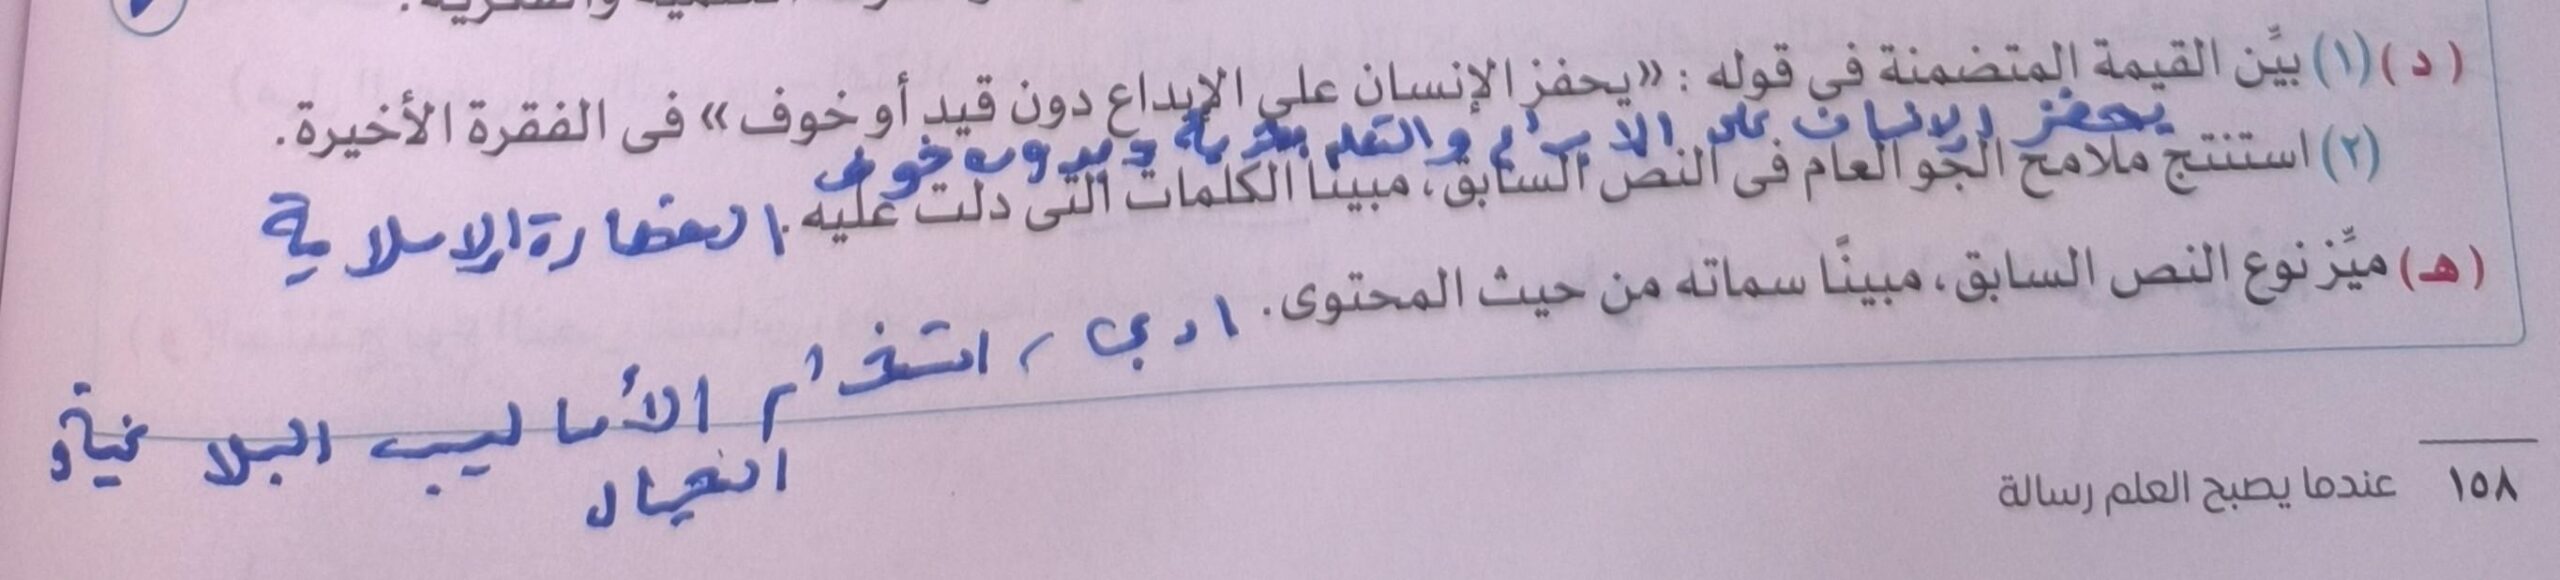 (د) (١) بيِّن القيمة المتضمنة فى قوله : «يحفز الإنسان على الإبداع دون قيد أو خوف» فى الفقرة الأخيرة.
يحفز الانسان على الابداع والتعلم بحرية وبدون خوف
(٢) استنتج ملامح الجو العام فى النص السابق، مبينًا الكلمات التى دلت عليه.
الحضارة الاسلامية
(هـ) ميِّز نوع النص السابق، مبينًا سماته من حيث المحتوى.
ادبي، استخدام الأساليب البلاغية و
الخيال
١٥٨ عندما يصبح العلم رسالة